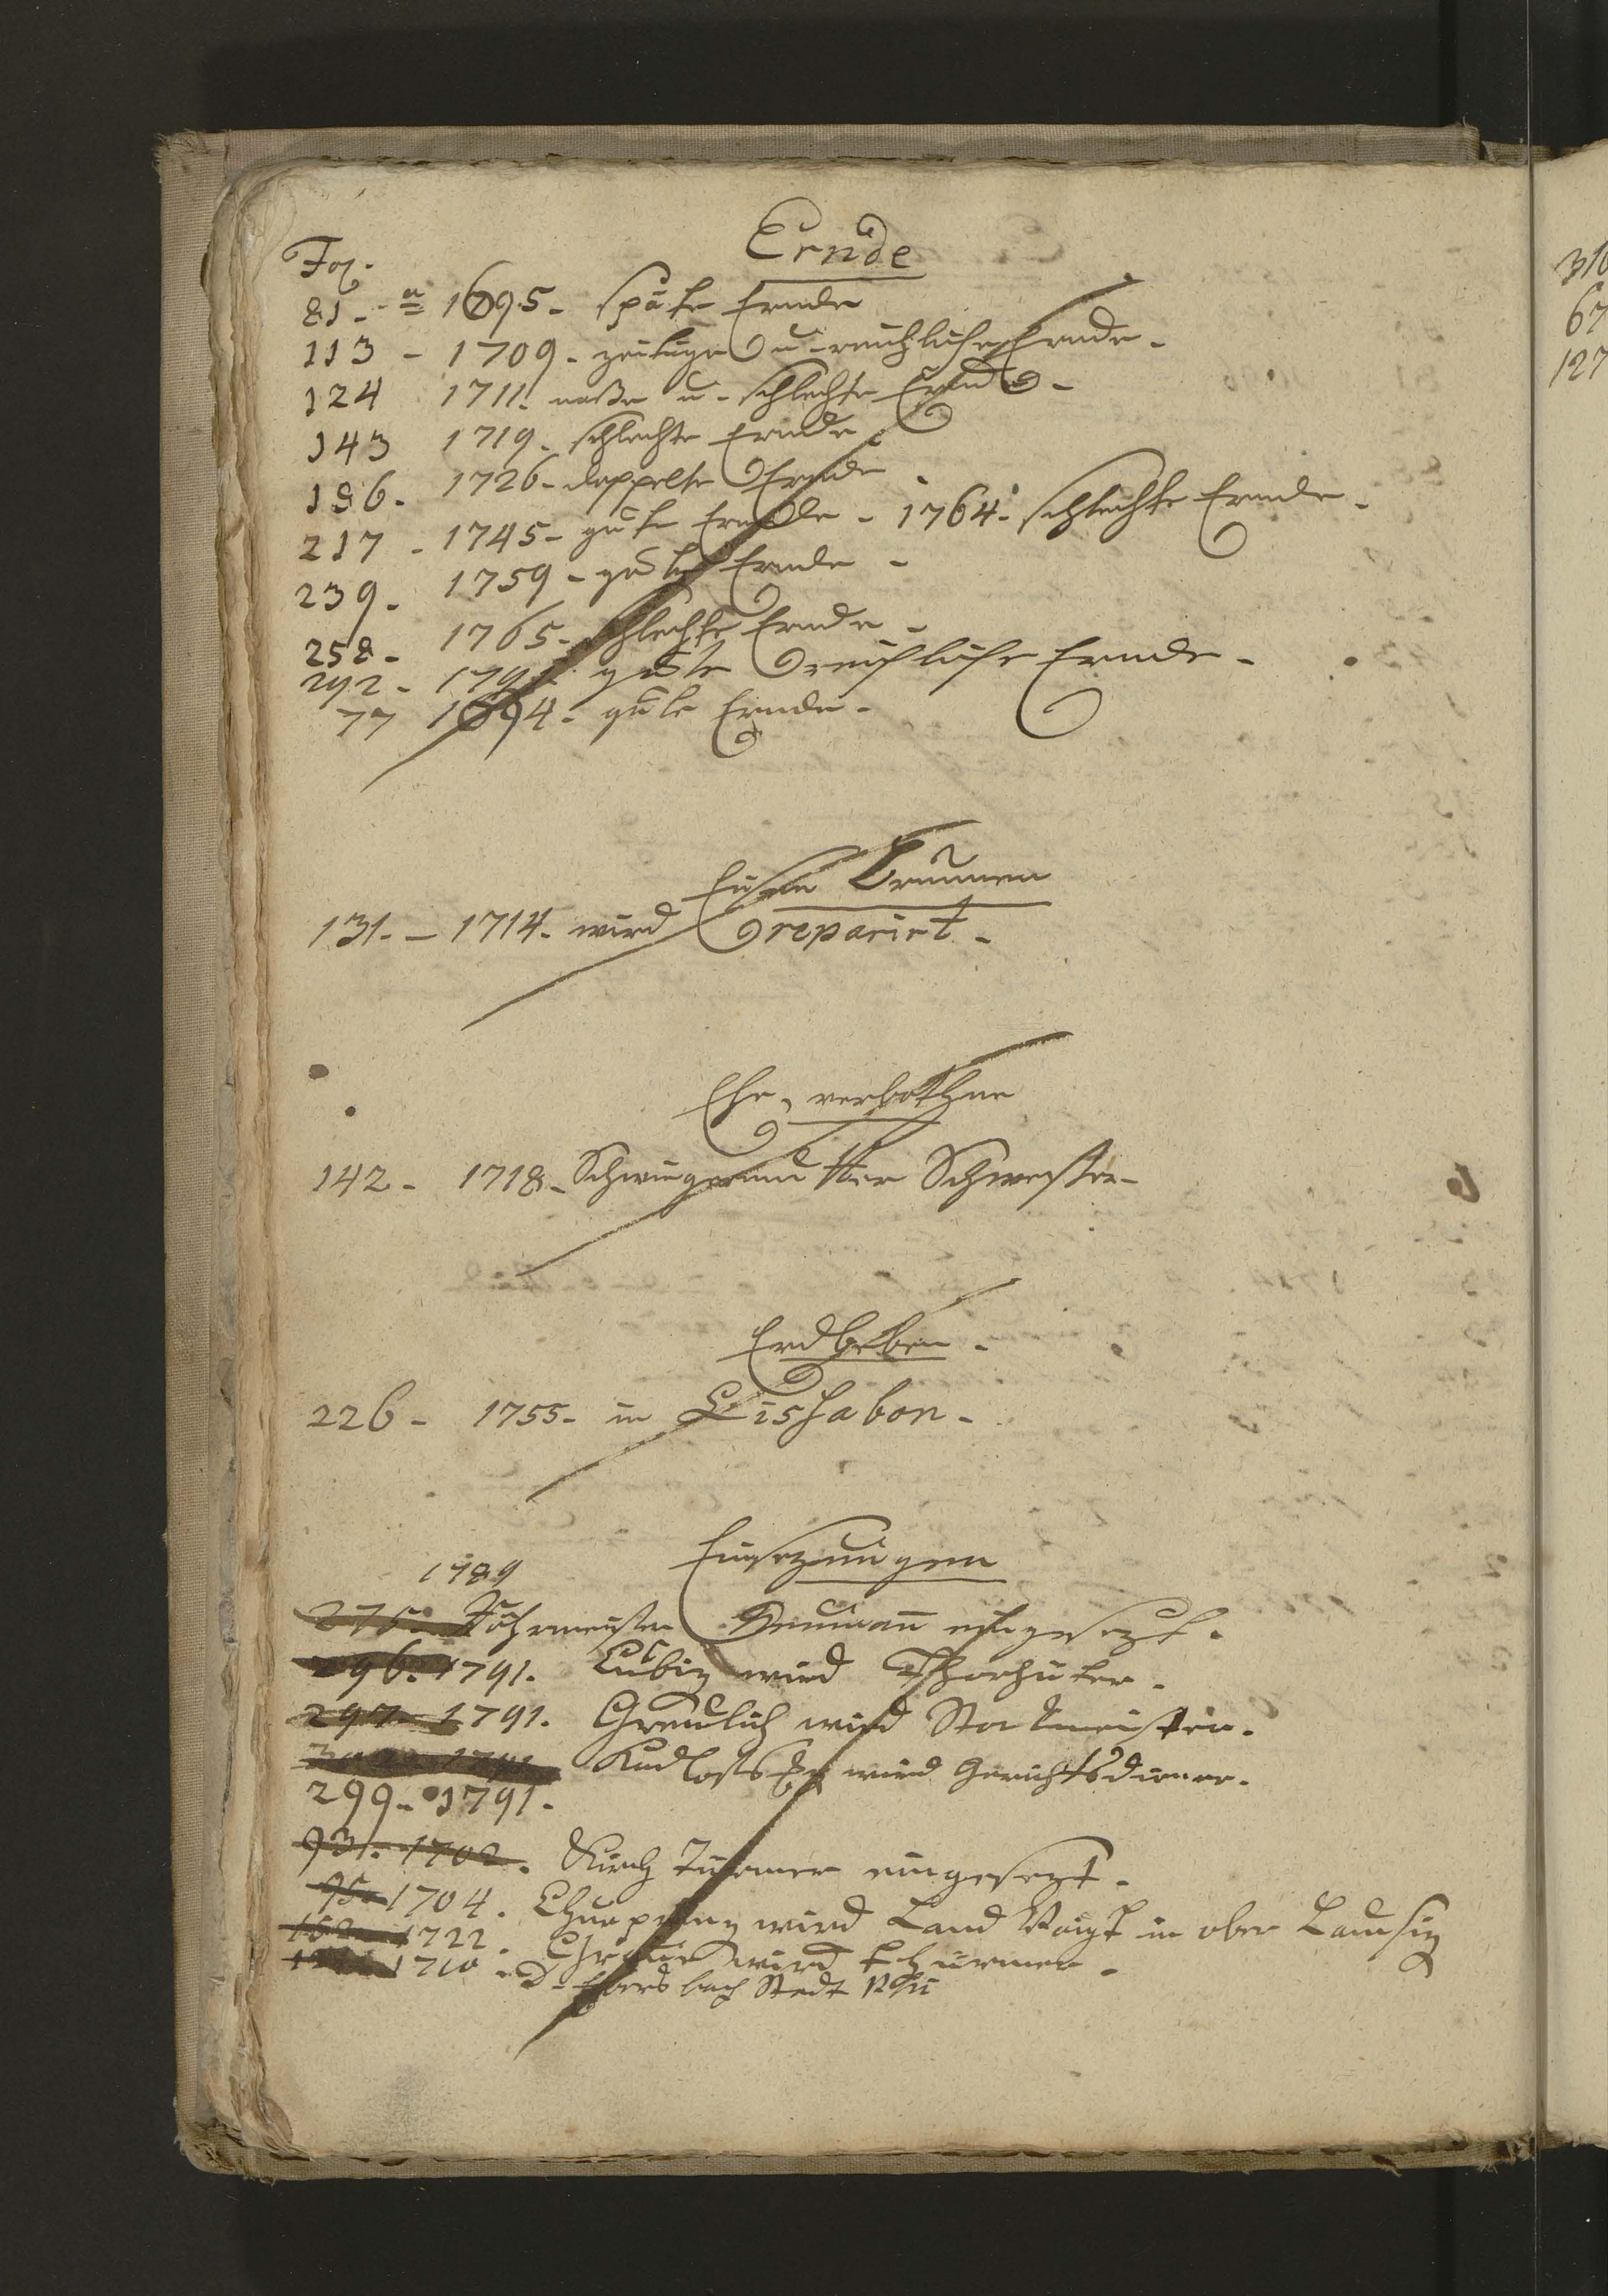 Ernde
Fol.
81. a 1695. späte Ernde
113 - 1709. zeitige u. reichliche Ernde.
124 1711. naße u. schlechte Ernde.
143 1719. schlechte Ernde.
196. 1726. doppelte Ernde
217. 1745. gute Ernde. 1764. schlechte Ernde.
239. 1759. gute Ernde.
258. 1765. schlechte Ernde.
292. gute reichliche Ernde.
77 1694. gute Ernde.
Brunnen
131. 1714. wird reparirt.
Ehe, verbothne
142. 1718. Schwiegermutter Schwester.
Erdbeben.
226. 1755. in Lishabon.
Einsezungen
1789
275. Neumann eingesezt.
296. 1791. Lubiz wird Thorhüter.
297 1791. Greulich wird Stockmeister.
wird Gerichtsdiener.
299. 1791.
93. 1702. Kirch Türmer eingesezt.
95. 1704. Churprinz wird Land Voigt in ober Lausiz
1722. wird thürmer.
1710. D. Ebersbach Stadt
310
67
127